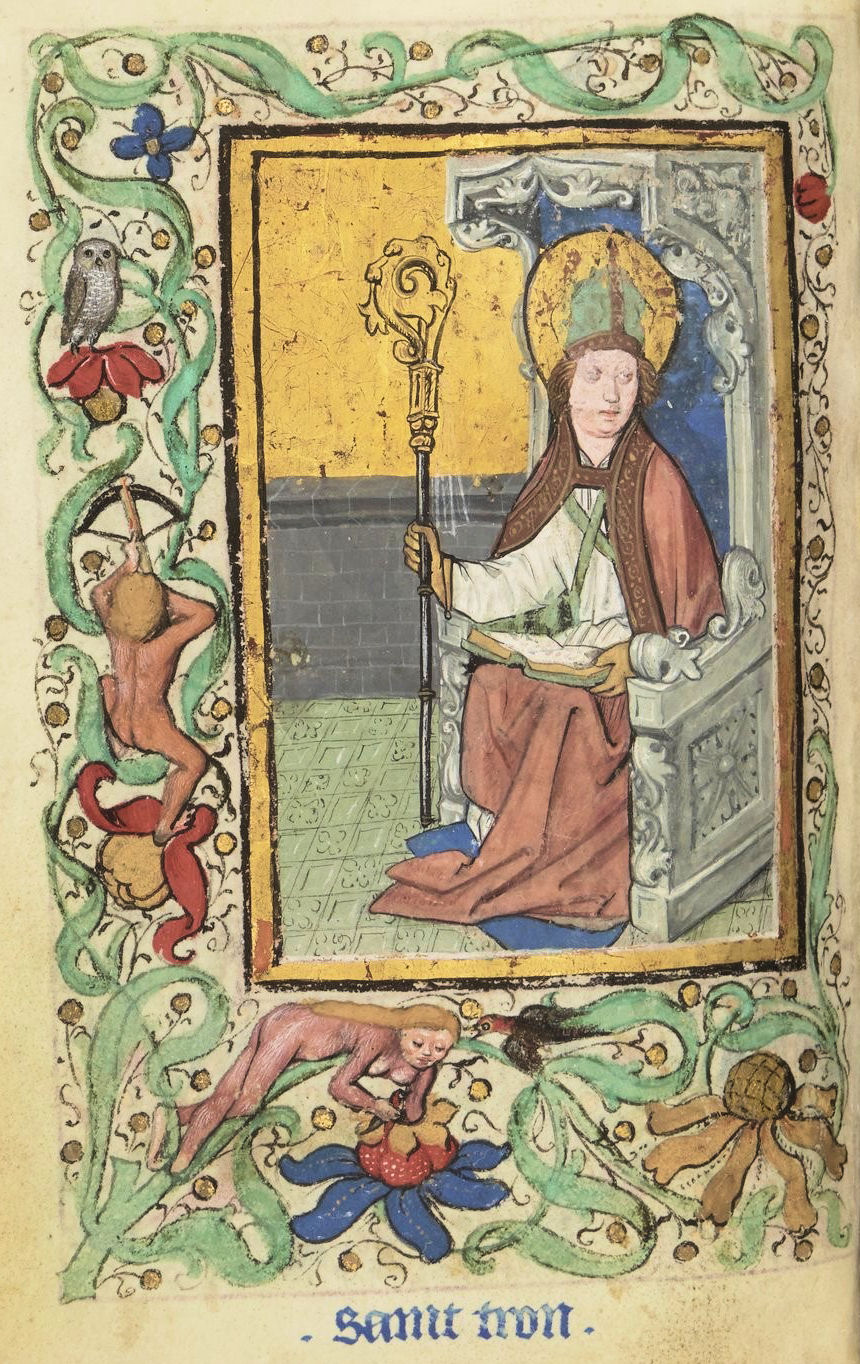 . sanct tron .